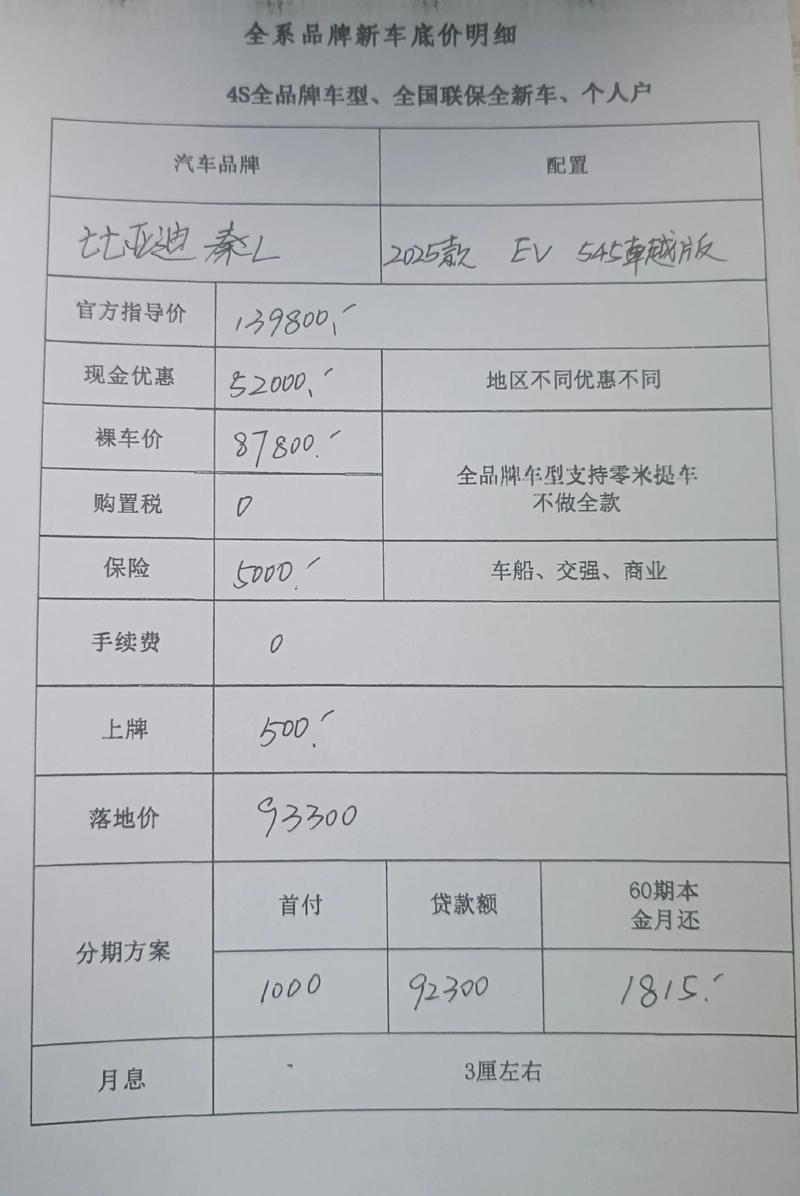 全系品牌新车底价明细
4S全品牌车型、全国联保全新车、个人户
汽车品牌
配置
比亚迪 秦L
2025款 EV 545卓越版
官方指导价
139800.
现金优惠
52000.
地区不同优惠不同
裸车价
87800.
全品牌车型支持零米提车
不做全款
购置税
0
保险
5000.
车船、交强、商业
手续费
0
上牌
500.
落地价
93300
分期方案
首付
贷款额
60期本
金月还
1000
92300
1815.
月息
3厘左右